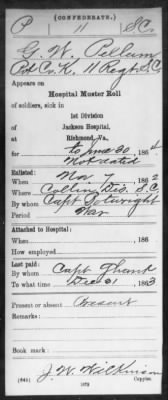 (CONFEDERATE.)
P 11 S.C.
G. W. Pellum
Pvt Co. K, 11 Regt S.C.
Appears on
Hospital Muster Roll
of soldiers, sick in
1st Division
Jackson Hospital,
at Richmond, Va.,
for to June 30, 1864
Not dated
Enlisted:
When Nov 7, 1862
Where Collin Dis. S.C.
By whom Capt Boatwright
Period War
Attached to Hospital:
When , 186
How employed
Last paid:
By whom Capt
To what time Dec 31, 1863
Present or absent Present
Remarks:
Book mark:
J. W. Wilkinson
(641) Copyist.